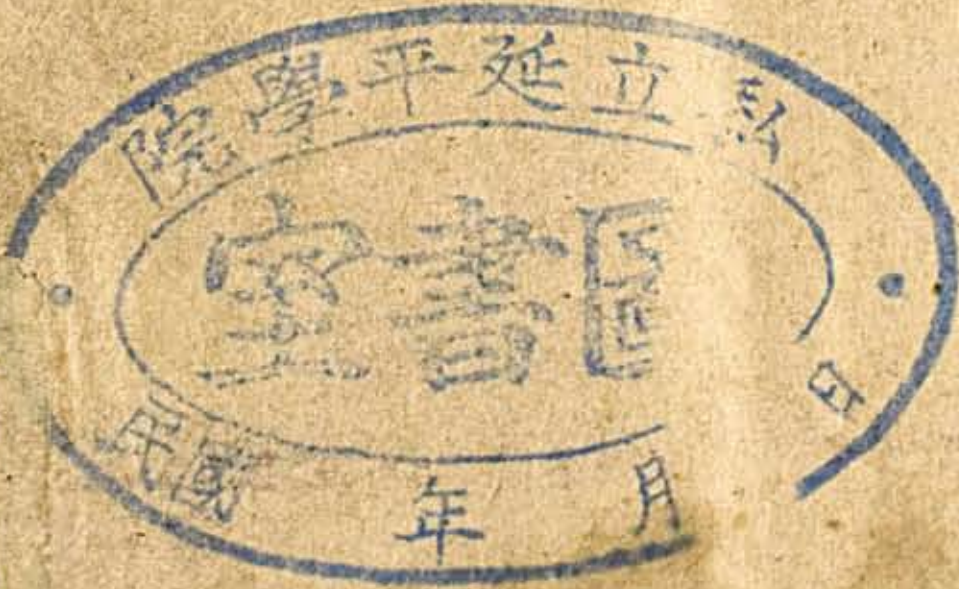 私立延平學院
圖書室
民國 年 月 日